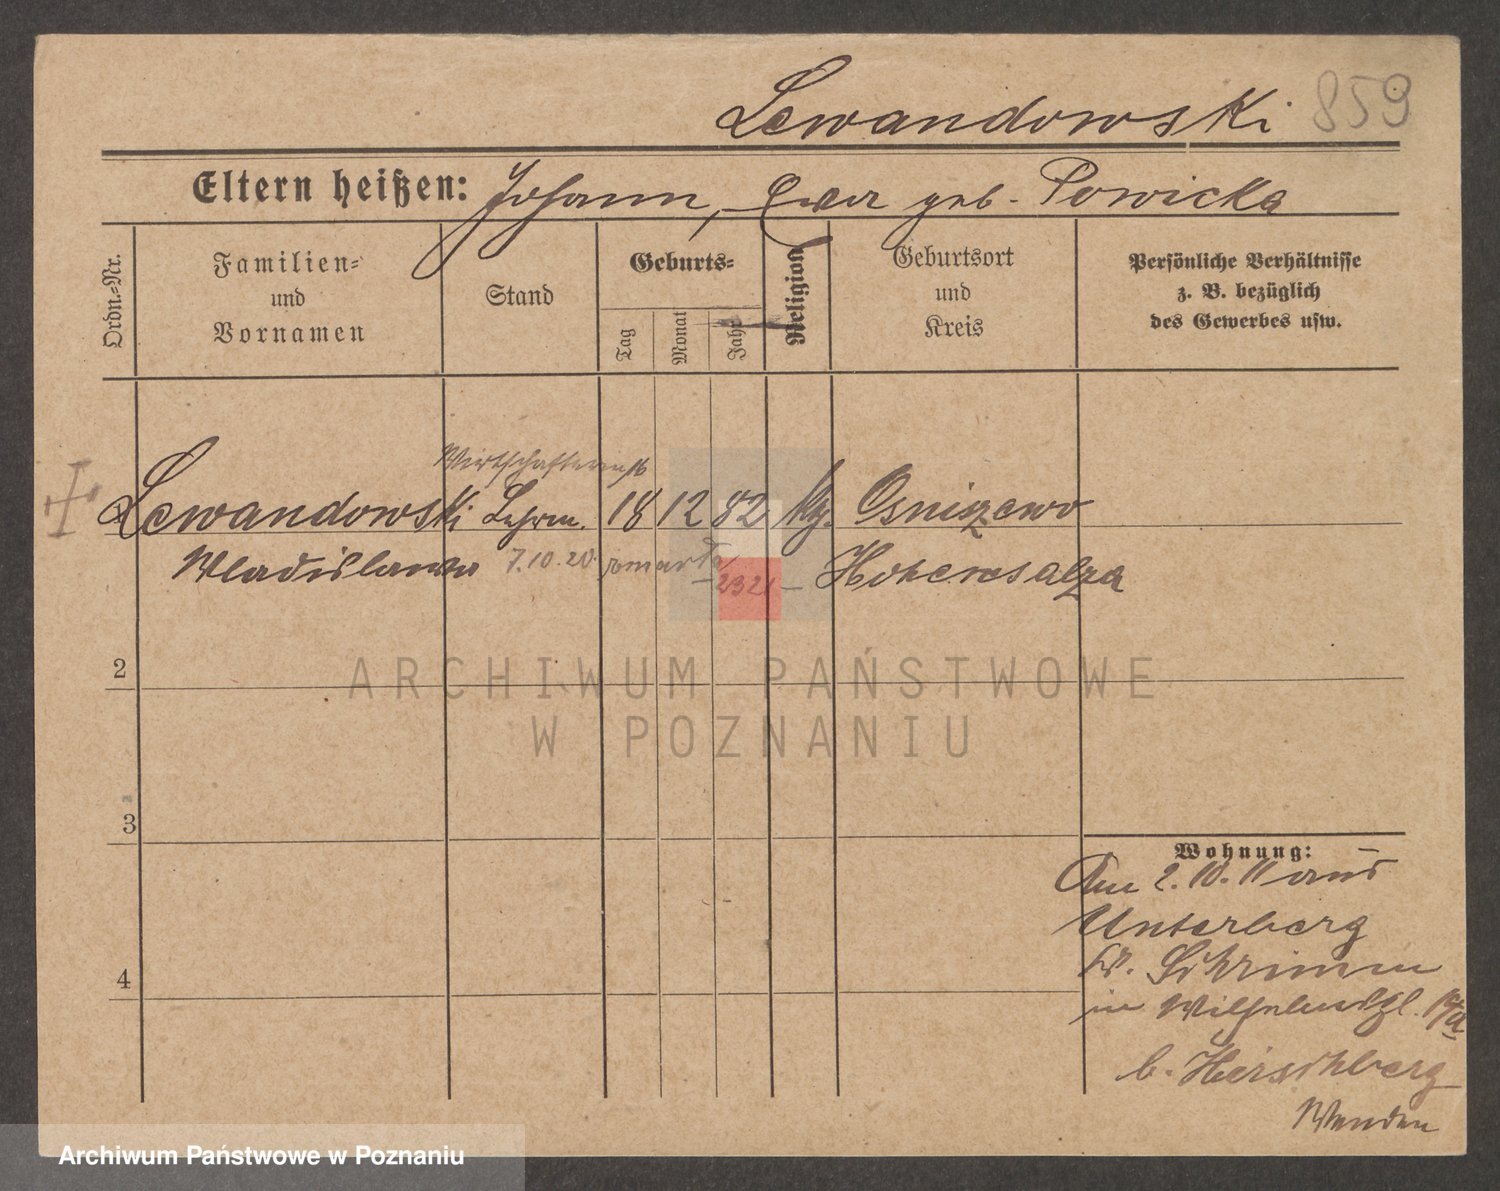 Lewandowski 859
Eltern heißen: Johann, Ewa geb. Powicka
Ordn.=Nr.
Familien=
und
Vornamen
Stand
Geburts=
Tag
Monat
Jahr
Religion
Geburtsort
und
Kreis
Persönliche Verhältnisse
z. B. bezüglich
des Gewerbes usw.
Lewandowski 18 12 82 Osniszewo
Wladislawa 7.10.20 2321 Hohensalza
2
ARCHIWUM PAŃSTWOWE
W POZNANIU
3
4
Wohnung:
Am 2.10.11 aus
Unterberg
Kr. Schrimm
in
b. Hirschberg
Wenden
Archiwum Państwowe w Poznaniu